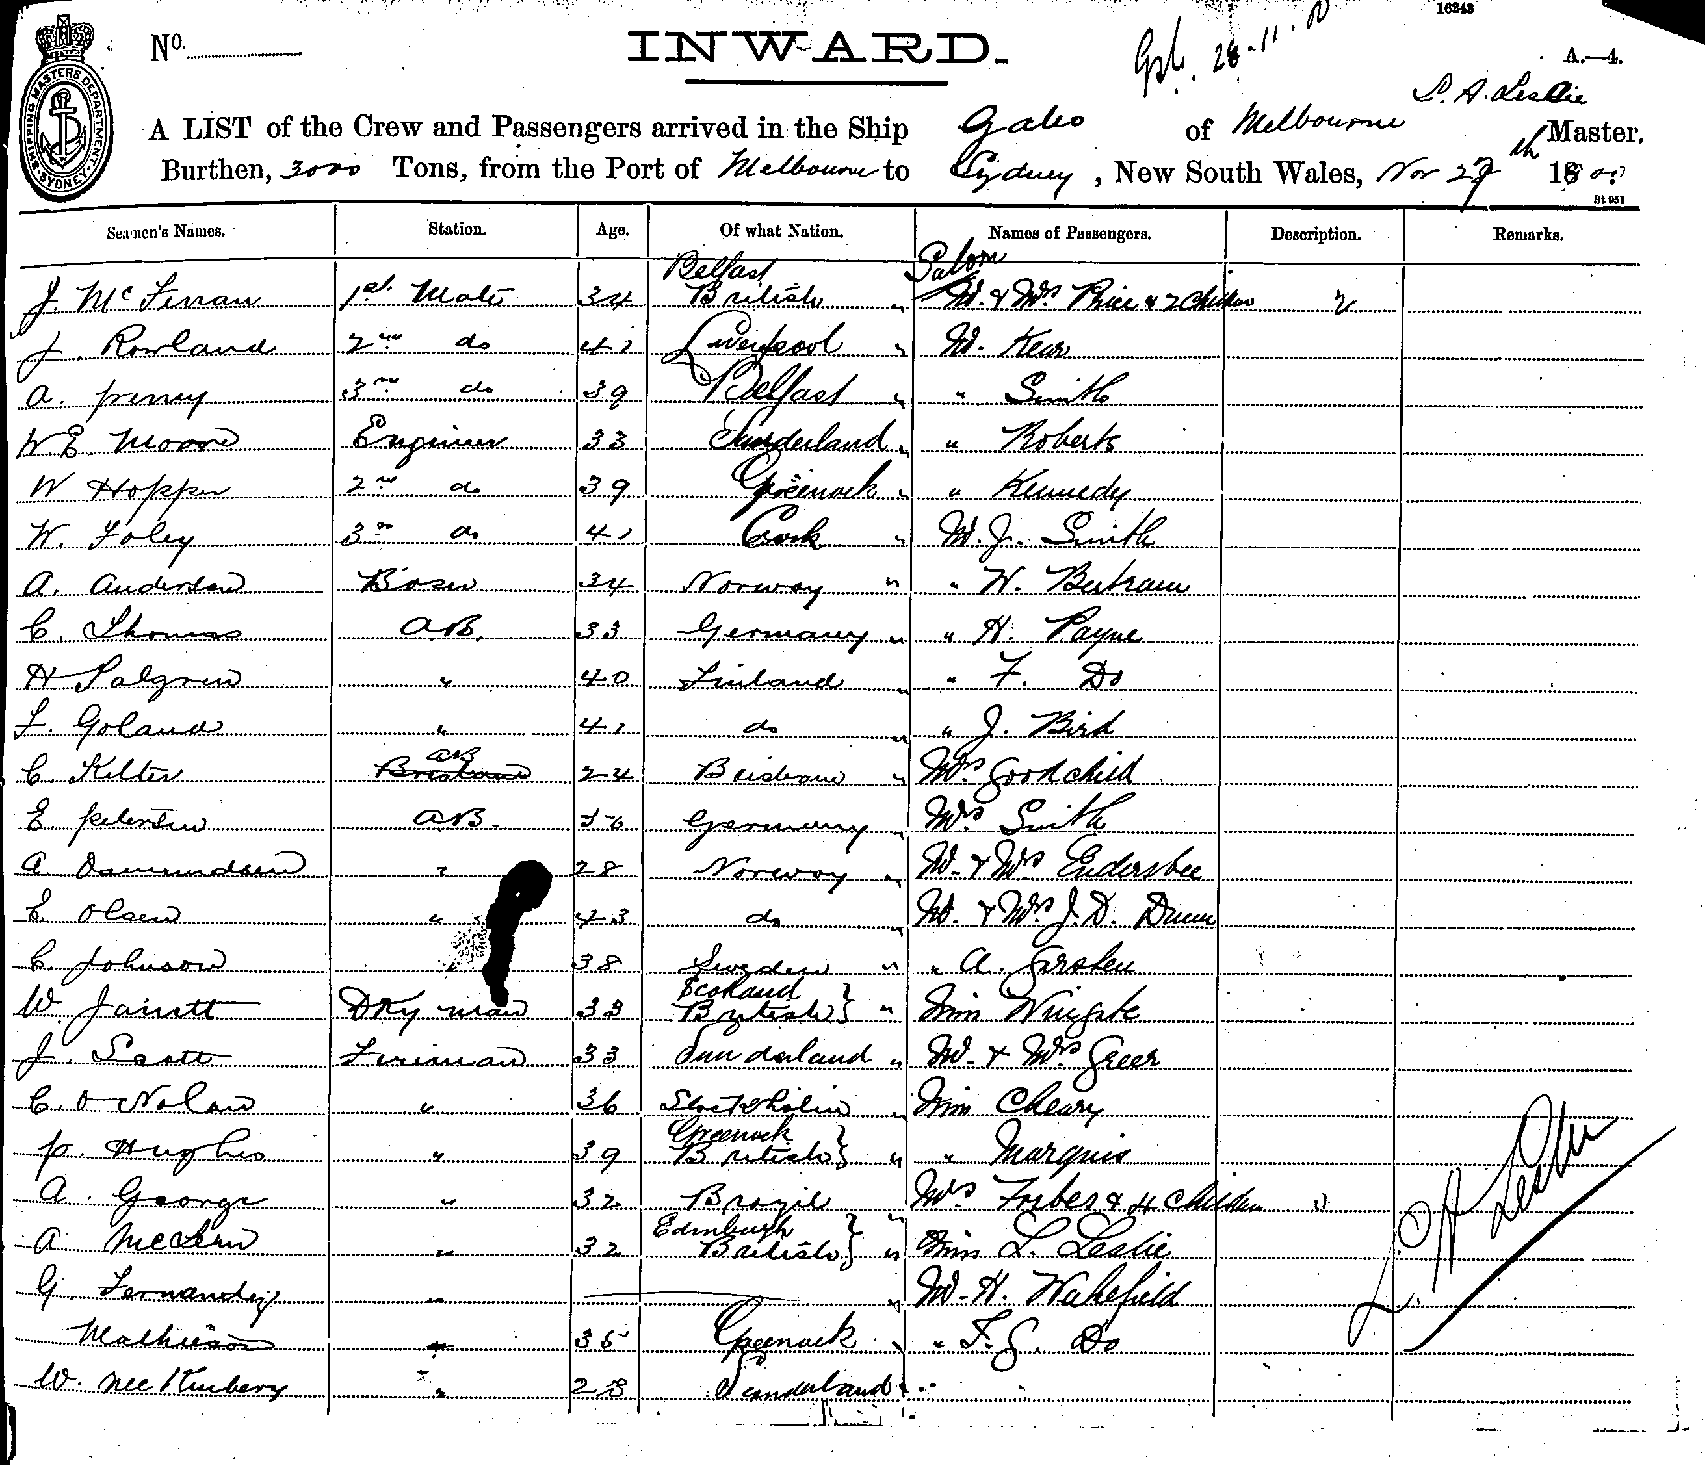 16343
No.
INWARD.
28.11.
A.—4.
SHIPPING MASTERS DEPARTMENT SYDNEY
Leslie
A LIST of the Crew and Passengers arrived in the Ship Gabo of Melbourne Master,
Burthen, 3000 Tons, from the Port of Melbourne to Sydney, New South Wales, Nov 27th 1800
St 951
Seamen's Names. Station. Age. Of what Nation. Names of Passengers. Description. Remarks.
Belfast Saloon
J 1st Mate 34 British " Mr. & Mrs Price & 2 Children 2
J. Rowland 2nd do 41 Liverpool " Mr. Kerr
A. 3rd do 39 Belfast " " Smith
W E Moore Engineer 33 Sunderland " " Roberts
W Hopper 2nd do 39 Greenock " " Kennedy
W. Foley 3rd do 41 Cork " Mr. J. Smith
A. Andersen Bosn 34 Norway " " W. Bertram
C. Thomas A.B. 33 Germany " " H. Payne
H Salgren " 40 Finland " " F. Do
F. Goland " 41 do " " J. Bird
AB
C. Kelter 24 Brisbane " Mrs Goodchild
E Petersen A.B. Germany " Mrs Smith
A Osmundsen " 28 Norway " Mr. & Mrs Endersbee
E Olsen " 43 do " Mr. & Mrs J. D. Dunn
C. Johnson " 38 Sweden " " A.
Scotland
W Jarrett Dky man 33 British } " Miss Wingate
J. Scott Fireman 33 Sunderland " Mr. & Mrs Greer
C. O Nolan " 36 Stockholm " Miss Cleary
Greenock
P. Hughes " 39 British } " " Marquis
A. George " 32 Brazil " Mrs Forbes & 4 Children
Edinburgh
A " 32 British } " Miss L. Leslie
G. Fernandez " " Mr. H. Wakefield
Mathieson " 35 Greenock " " F. G. Do
W. " 28 Sunderland "
Leslie